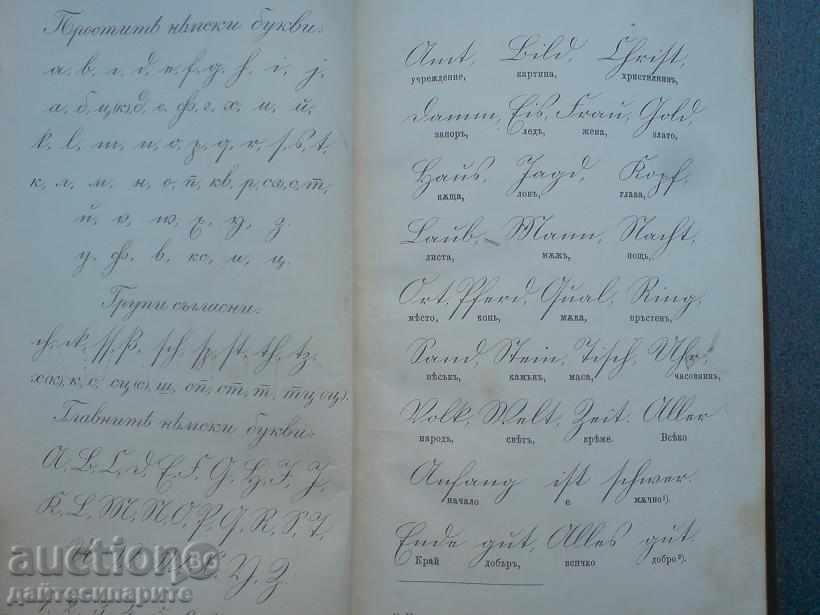 Проститѣ нѣмски букви.
a, b, c, d, e, f, g, h, i, j,
а, б, ц(к), д, е, ф, г, х, и, й,
k, l, m, n, o, p, q, r, s, t,
к, л, м, н, о, п, кв, р, с, т,
ü, v, w, x, y, z.
у, ф, в, кс, и, ц.
Групи съгласни.
ch, ck, ss, ß, sch, sp, st, th, tz.
Главнитѣ нѣмски букви.
A, B, C, D, E, F, G, H, I, J,
K, L, M, N, O, P, Q, R, S, T,
Y, Z.
Amt, Bild, Christ,
учреждение, картина, християнинъ,
Damm, Eis, Frau, Gold,
запоръ, ледъ, жена, злато,
Haus, Jagd, Kopf,
кѫща, ловъ, глава,
Laub, Mann, Nacht,
листа, мѫжъ, нощь,
Ort, Pferd, Qual, Ring,
мѣсто, конь, мѫка, пръстенъ,
Sand, Stein, Tisch, Uhr,
пѣсъкъ, камъкъ, маса, часовникъ,
Volk, Welt, Zeit. Aller
народъ, свѣтъ, врѣме. Всѣко
Anfang ist schwer.
начало е мѫчно¹).
Ende gut, Alles gut.
Край добъръ, всичко добро²).
auction
дайтесипарите